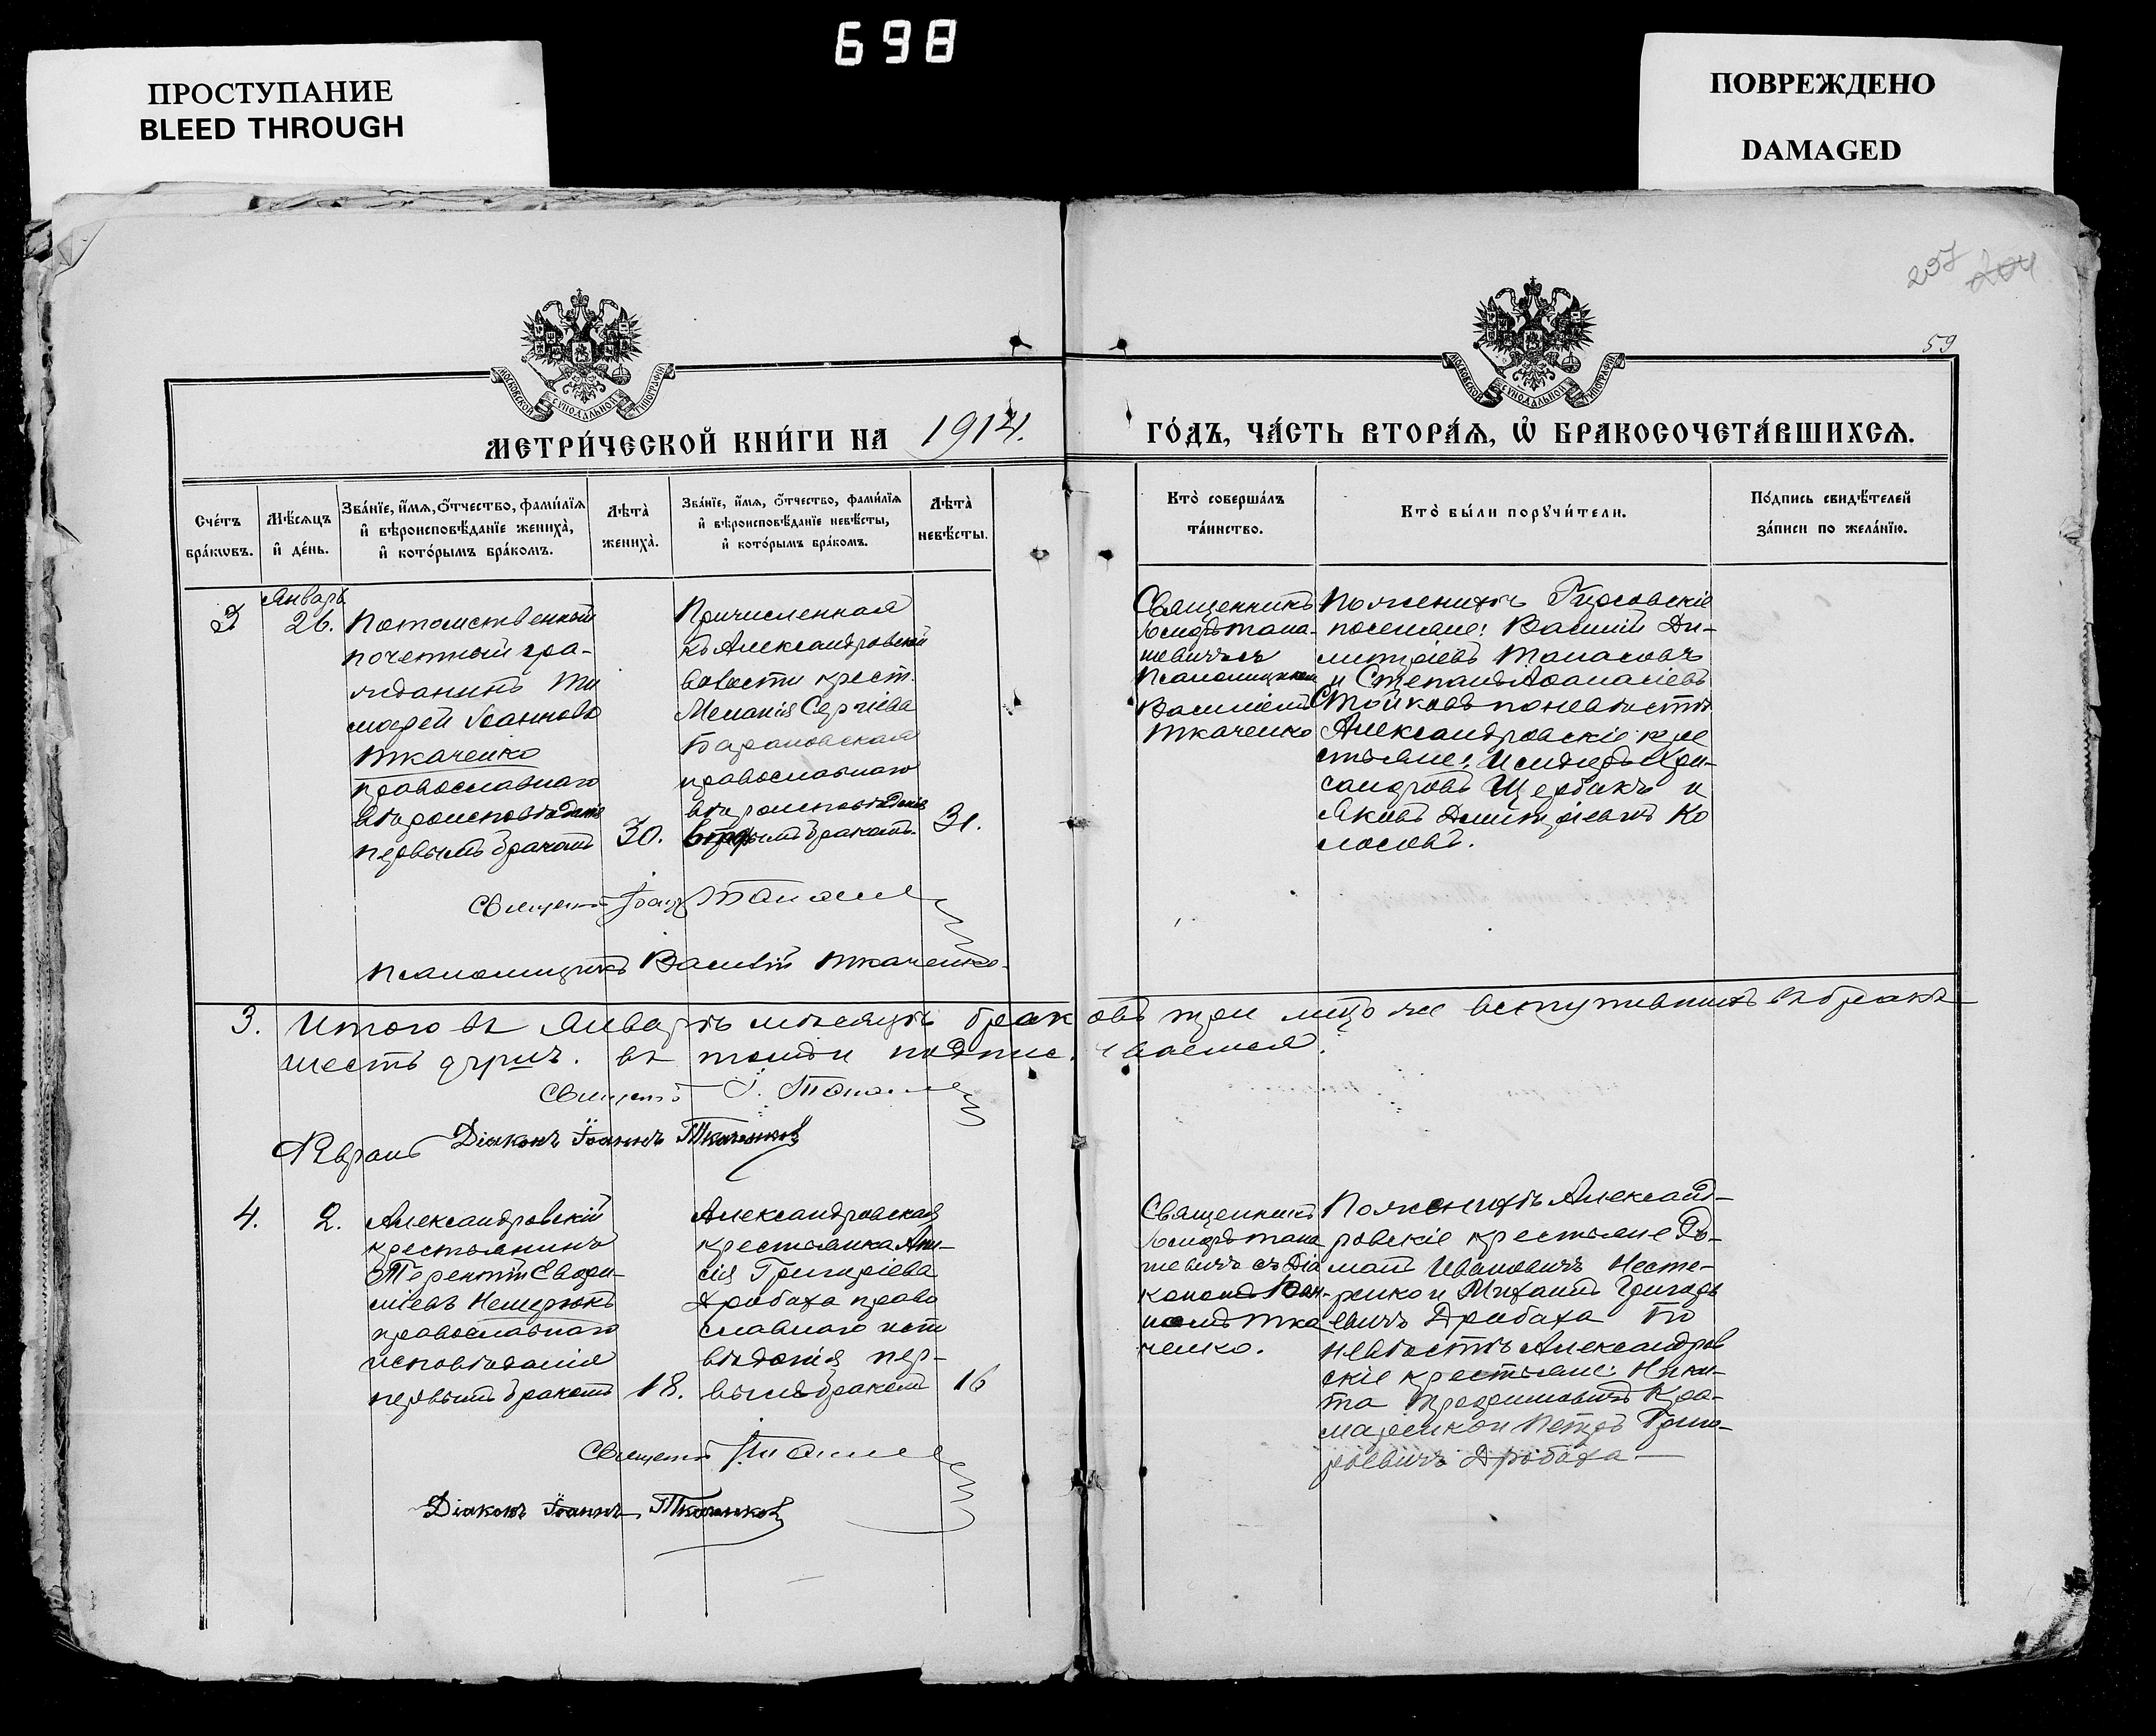 698
ПРОСТУПАНИЕ
BLEED THROUGH
ПОВРЕЖДЕНО
DAMAGED
257 204
59
МОСКОВСКОЙ СѴНОДАЛЬНОЙ ТИПОГРАФІИ
МОСКОВСКОЙ СѴНОДАЛЬНОЙ ТИПОГРАФІИ
МЕТРИ́ЧЕСКОЙ КНИ́ГИ НА 1914.
ГО́ДЪ, ЧА́СТЬ ВТОРА́Ѧ, Ѽ БРАКОСОЧЕТА́ВШИХСѦ.
Сче́тъ
бра́кѡвъ.
Мѣ́сѧцъ
и҆ де́нь.
Зва́нїе, и҆́мѧ, ѻ҆́тчество, фами́лїѧ
и҆ вѣроисповѣ́данїе жениха̀,
и҆ кото́рымъ бра́комъ.
Лѣта̀
жениха̀.
Зва́нїе, и҆́мѧ, ѻ҆́тчество, фами́лїѧ
и҆ вѣроисповѣ́данїе невѣ́сты,
и҆ кото́рымъ бра́комъ.
Лѣта̀
невѣ́сты.
Кто̀ соверша́лъ
та́инство.
Кто̀ бы́ли порꙋчи́тели.
По́дпись свидѣ́телей
за́писи по жела́нїю.
3
Январь
26.
Потомственный
почетный гра-
жданинъ Ти
мофей Іоанновъ
Ткаченко
православнаго
вѣроисповѣданія
первымъ бракомъ
30.
Причисленная
къ Александровской
волости крест.
Меланія Сергіева
Барановская
православнаго
вѣроисповѣданія
вторымъ бракомъ.
31.
Священникъ
Іосифъ Тана-
шевичъ съ
Псаломщикомъ
Василіемъ
Ткаченко
По женихѣ Гирсовскіе
поселяне: Василій Ди-
митріевъ Танасовъ
и Степанъ Аѳанасіевъ
Стойковъ по невѣстѣ
Александровскіе кре
стьяне: Исидоръ Хри-
сандровъ Щербакъ и
Яковъ Димитріевичъ Ко
лосовъ.
Псаломщикъ Василій Ткаченко.
3. Итого въ Январѣ мѣсяцѣ браковъ три лицъ же вступившихъ въ бракъ
шесть душъ. въ томъ и подписываемся.
Діаконъ Іоаннъ Ткаченковъ
Февраль
4.
2.
Александровскій
крестьянинъ
Терентій Евфи-
міевъ Немерюкъ
православнаго
исповѣданія
первымъ бракомъ
18.
Александровская
крестьянка Ани-
сія Григоріева
Дробаха право
славнаго испо
вѣданія пер-
вымъ бракомъ
16
Священникъ
Іосифъ Тана
шевичъ съ Діа
кономъ Іоан-
номъ Тка
ченко.
По женихѣ Александ-
ровскіе крестьяне Ро-
манъ Ивановичъ Несте-
ренко и Михаилъ Григорь
евичъ Дробаха По
невѣстѣ Александров
скіе крестьяне: Ники-
та Кра-
маренко и Петръ Григо-
рьевичъ Дробаха
Діаконъ Іоаннъ Ткаченковъ